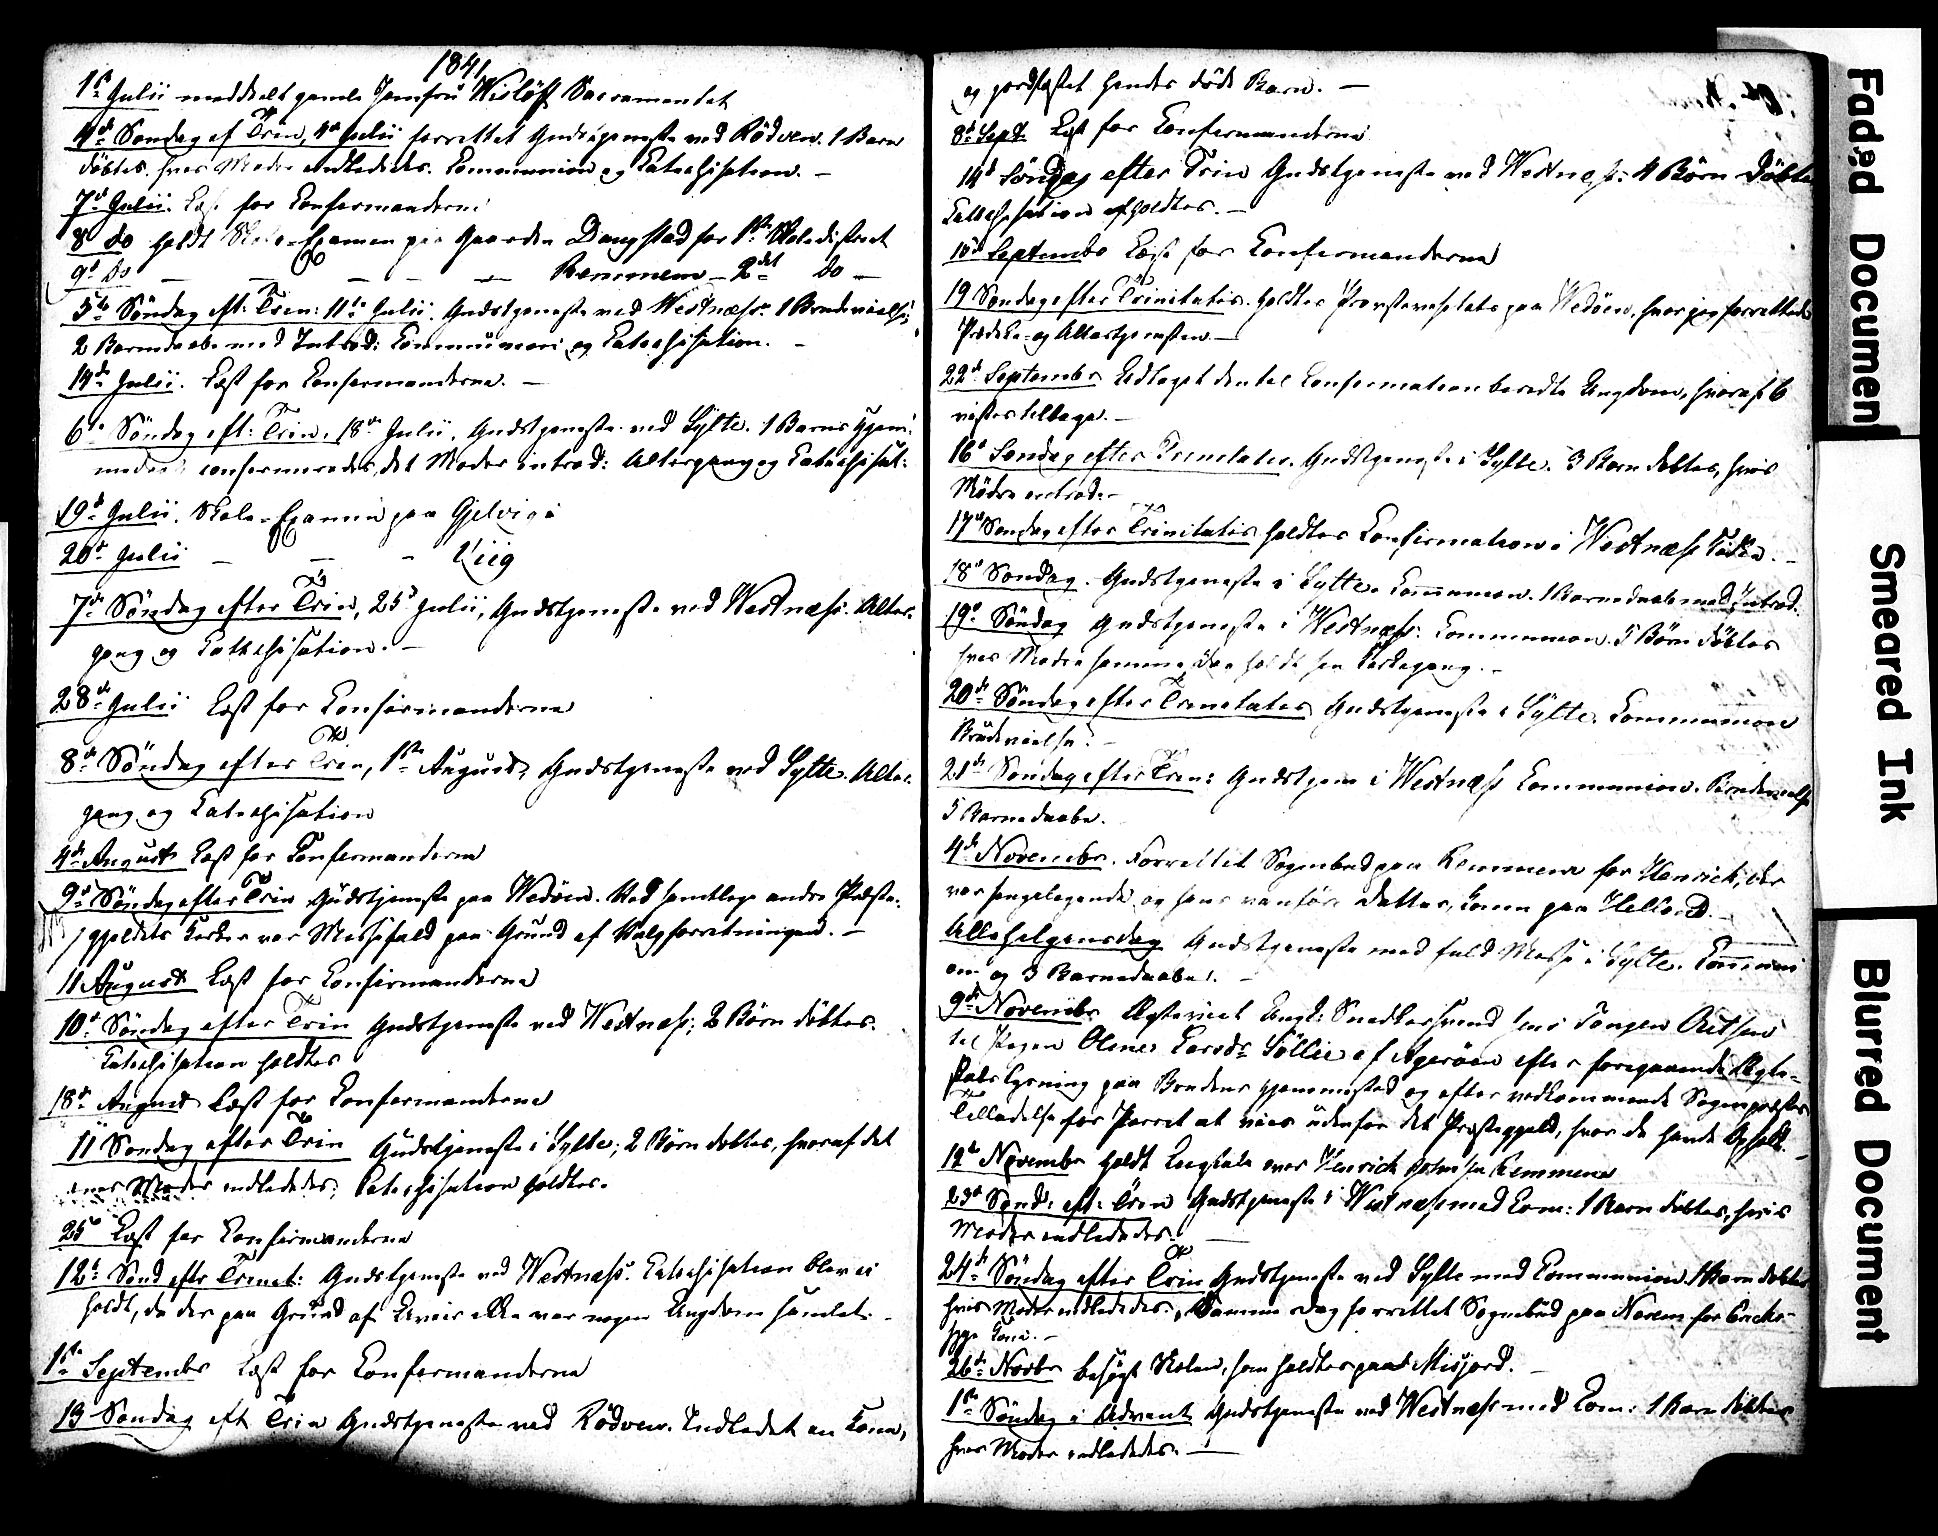 1841
1ste Julii meddeelt gamle Jomfru Wisløff Sacramentet
4de Søndag ef Trin, 4de Julii forrettet Gudstjeneste ved Rödven. 1 Barn
döbtes. hvis Moder indlededes. Communion og Catechisation. —
7de Julii. Læst for Confirmanderne
8 do holdt Skole-Examen paa Gaarden Daugstad for 1ste Skoledistrict
9de do — — — — Remmem — 2det do —
5te Söndag eft: Trin: 11te Julii. Gudstjeneste ved Westnæss. 1 Brudevielse,
2 Barnedaab med Introd: Communion og Catechisation. —
14de Julii. Læst for Confirmanderne. —
6te Söndag eft: Trin. 18de Julii. Gudstjeneste ved Sylte. 1 Barns Hjem-
medaab confirmeredes, det Moder introd: Altergang og Catechisat:
19de Julii. Skole-Examen paa Gjelvig
20de Julii — — - Viig
7de Söndag efter Trin, 25de Julii, Gudstjeneste ved Westnæss. Alter-
gang og Catechisation. —
28de Julii Læst for Confirmanderne
8de Söndag efter Trin, 1ste August, Gudstjeneste ved Sylte. Alter-
gang og Catechisation
4de August Læst for Confirmanderne
9de Söndag efter Trin Gudstjeneste paa Wedöen. Ved samtlige andre Præste-
gjeldets Kirker var Messefald paa Grund af Valgforretningen. —
11 August Læst for Confirmanderne
10de Söndag efter Trin Gudstjeneste ved Westnæss; 2 Börn döbtes.
Catechisation holdtes
18de August Læst for Confirmanderne
11 Søndag efter Trin Gudstjeneste i Sylte; 2 Börn döbtes, hvoraf det
enes Moder indlededes; Catechisation holdtes.
25de Læst for Confirmanderne
12te Sönd eftr Trinit: Gudstjeneste ved Westnæss. Catechisation blev ei
holdt, da der paa Grund af Uveir ikke var nogen Ungdom samlet. —
1ste September Læst for Confirmanderne
13 Søndag eft Trin Gudstjeneste ved Rödven. Indledet en Kone,
og jordfæstet hendes døde Barn. —
8de Sept. Læst for Confirmanderne
14de Söndag efter Trin Gudstjeneste ved Westnæss: 4 Börn döbtes
Catechisation afholdtes. —
15de September Læst for Confirmanderne
19 Søndag efter Trinitatis. holdtes Provstevisitats paa Wedöen, hvor jeg forrettede
Prædike- og Altertjenesten. —
22de September Udtaget den til Confirmation beredte Ungdom, hvoraf 6
vistes tilbage. —
16de Søndag efter Trinitatis. Gudstjeneste i Sylte. 3 Børn døbtes, hvis
Mödre introd: —
17de Søndag efter Trinitatis holdtes Confirmation i Westnæss Kirke. —
18de Søndag. Gudstjeneste i Sylte. Communion. 1 Barnedaab med Introd.
19de Söndag Gudstjeneste i Westnæss. Communion. 5 Börn döbtes
hvis Mødre samme Dag holdt sin Kirkegang. —
20de Söndag efter Trinitatis Gudstjeneste i Sylte. Communion
Brudevielse. —
21de Søndag efter Trin: Gudstjen i Westnæss Communion. Brudevielse
5 Barnedaabe.
4de November. Forrettet Sognebud paa Remmem for Henrich, der
var sengeliggende og hans vanföre Datter, Karen paa Helland. —
Allehelgensdag Gudstjeneste med fuld Messe i Sylte. Communi
on og 3 Barnedaabe. —
9de November Ægteviet Ungk: Snedkersvend Jens Tangen
til Pigen Oline Larsdr Söllie af Agerøen efter foregaaende Ægte-
skabs lysning paa Brudens Hjemmested og efter vedkommende Sognepræsts
Tilladelse for Parret at vies udenfor det Præstegjeld, hvor de havde Ophold.
12te November holdt Liigtale over Henrich Remmem
23de Sönd: eft: Trin Gudstjeneste i Westnæss med Com: 1 Barn döbtes, hvis
Moder indlededes. —
24de Söndag efter Trin Gudstjeneste ved Sylte med Communion. 1 Barn döbtes
hvis Moder indlededes. Samme Dag forrettet Sognebud paa Norem for Enke-
Kone. —
26de Novbr besøgt Skolen, som holdtes paa Misfjord. —
1ste Söndag i Advent Gudstjeneste ved Westnæss med Com: 1 Barn döbtes
hvis Moder indlededes. —
Faded Document
Smeared Ink
Blurred Document